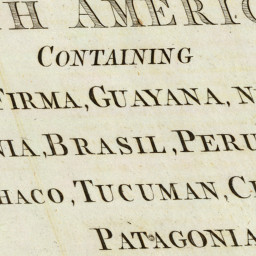 H AMERIC
CONTAINING
FIRMA, GUAYANA, N
NIA, BRASIL, PERU
HACO, TUCUMAN, C
PATAGONIA